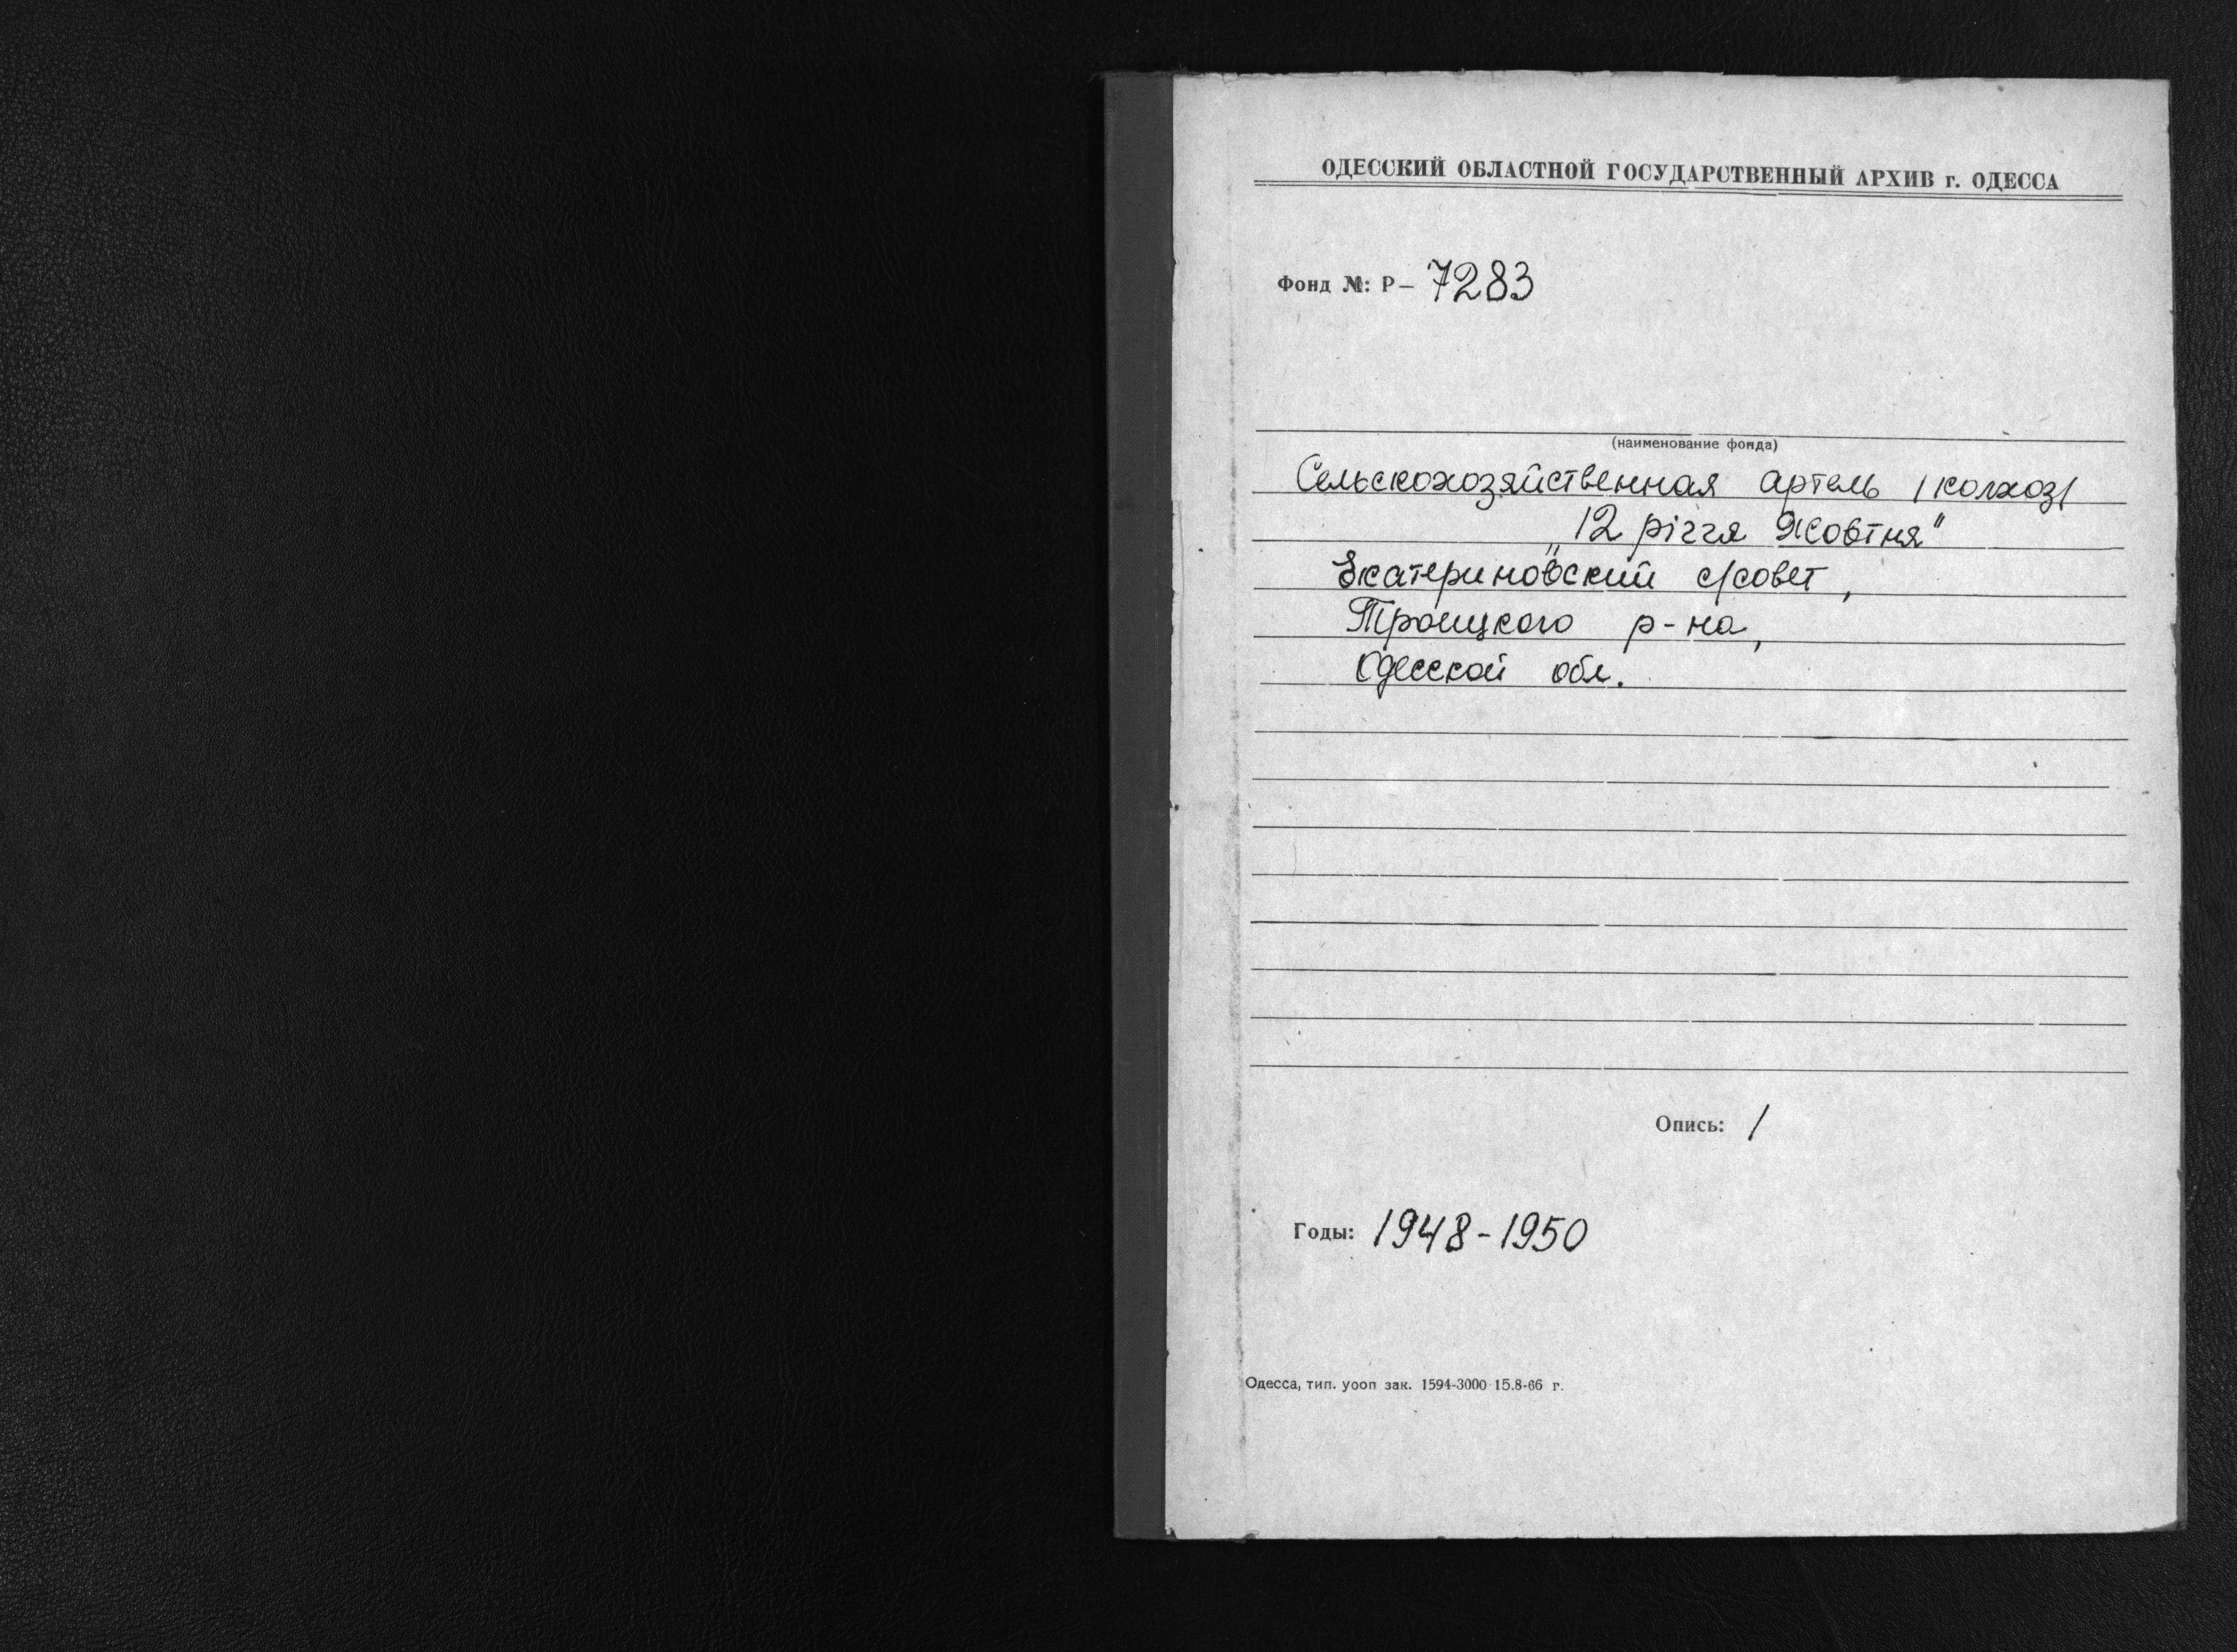 ОДЕССКИЙ ОБЛАСТНОЙ ГОСУДАРСТВЕННЫЙ АРХИВ г. ОДЕССА
Фонд №: Р— 7283
(наименование фонда)
Сельскохозяйственная артель /колхоз/
„12 річчя Жовтня"
Екатериновский с/совет,
Троицкого р-на,
Одесской обл.
Опись: 1
Годы: 1948-1950
Одесса, тип. уооп зак. 1594-3000 15.8-66 г.